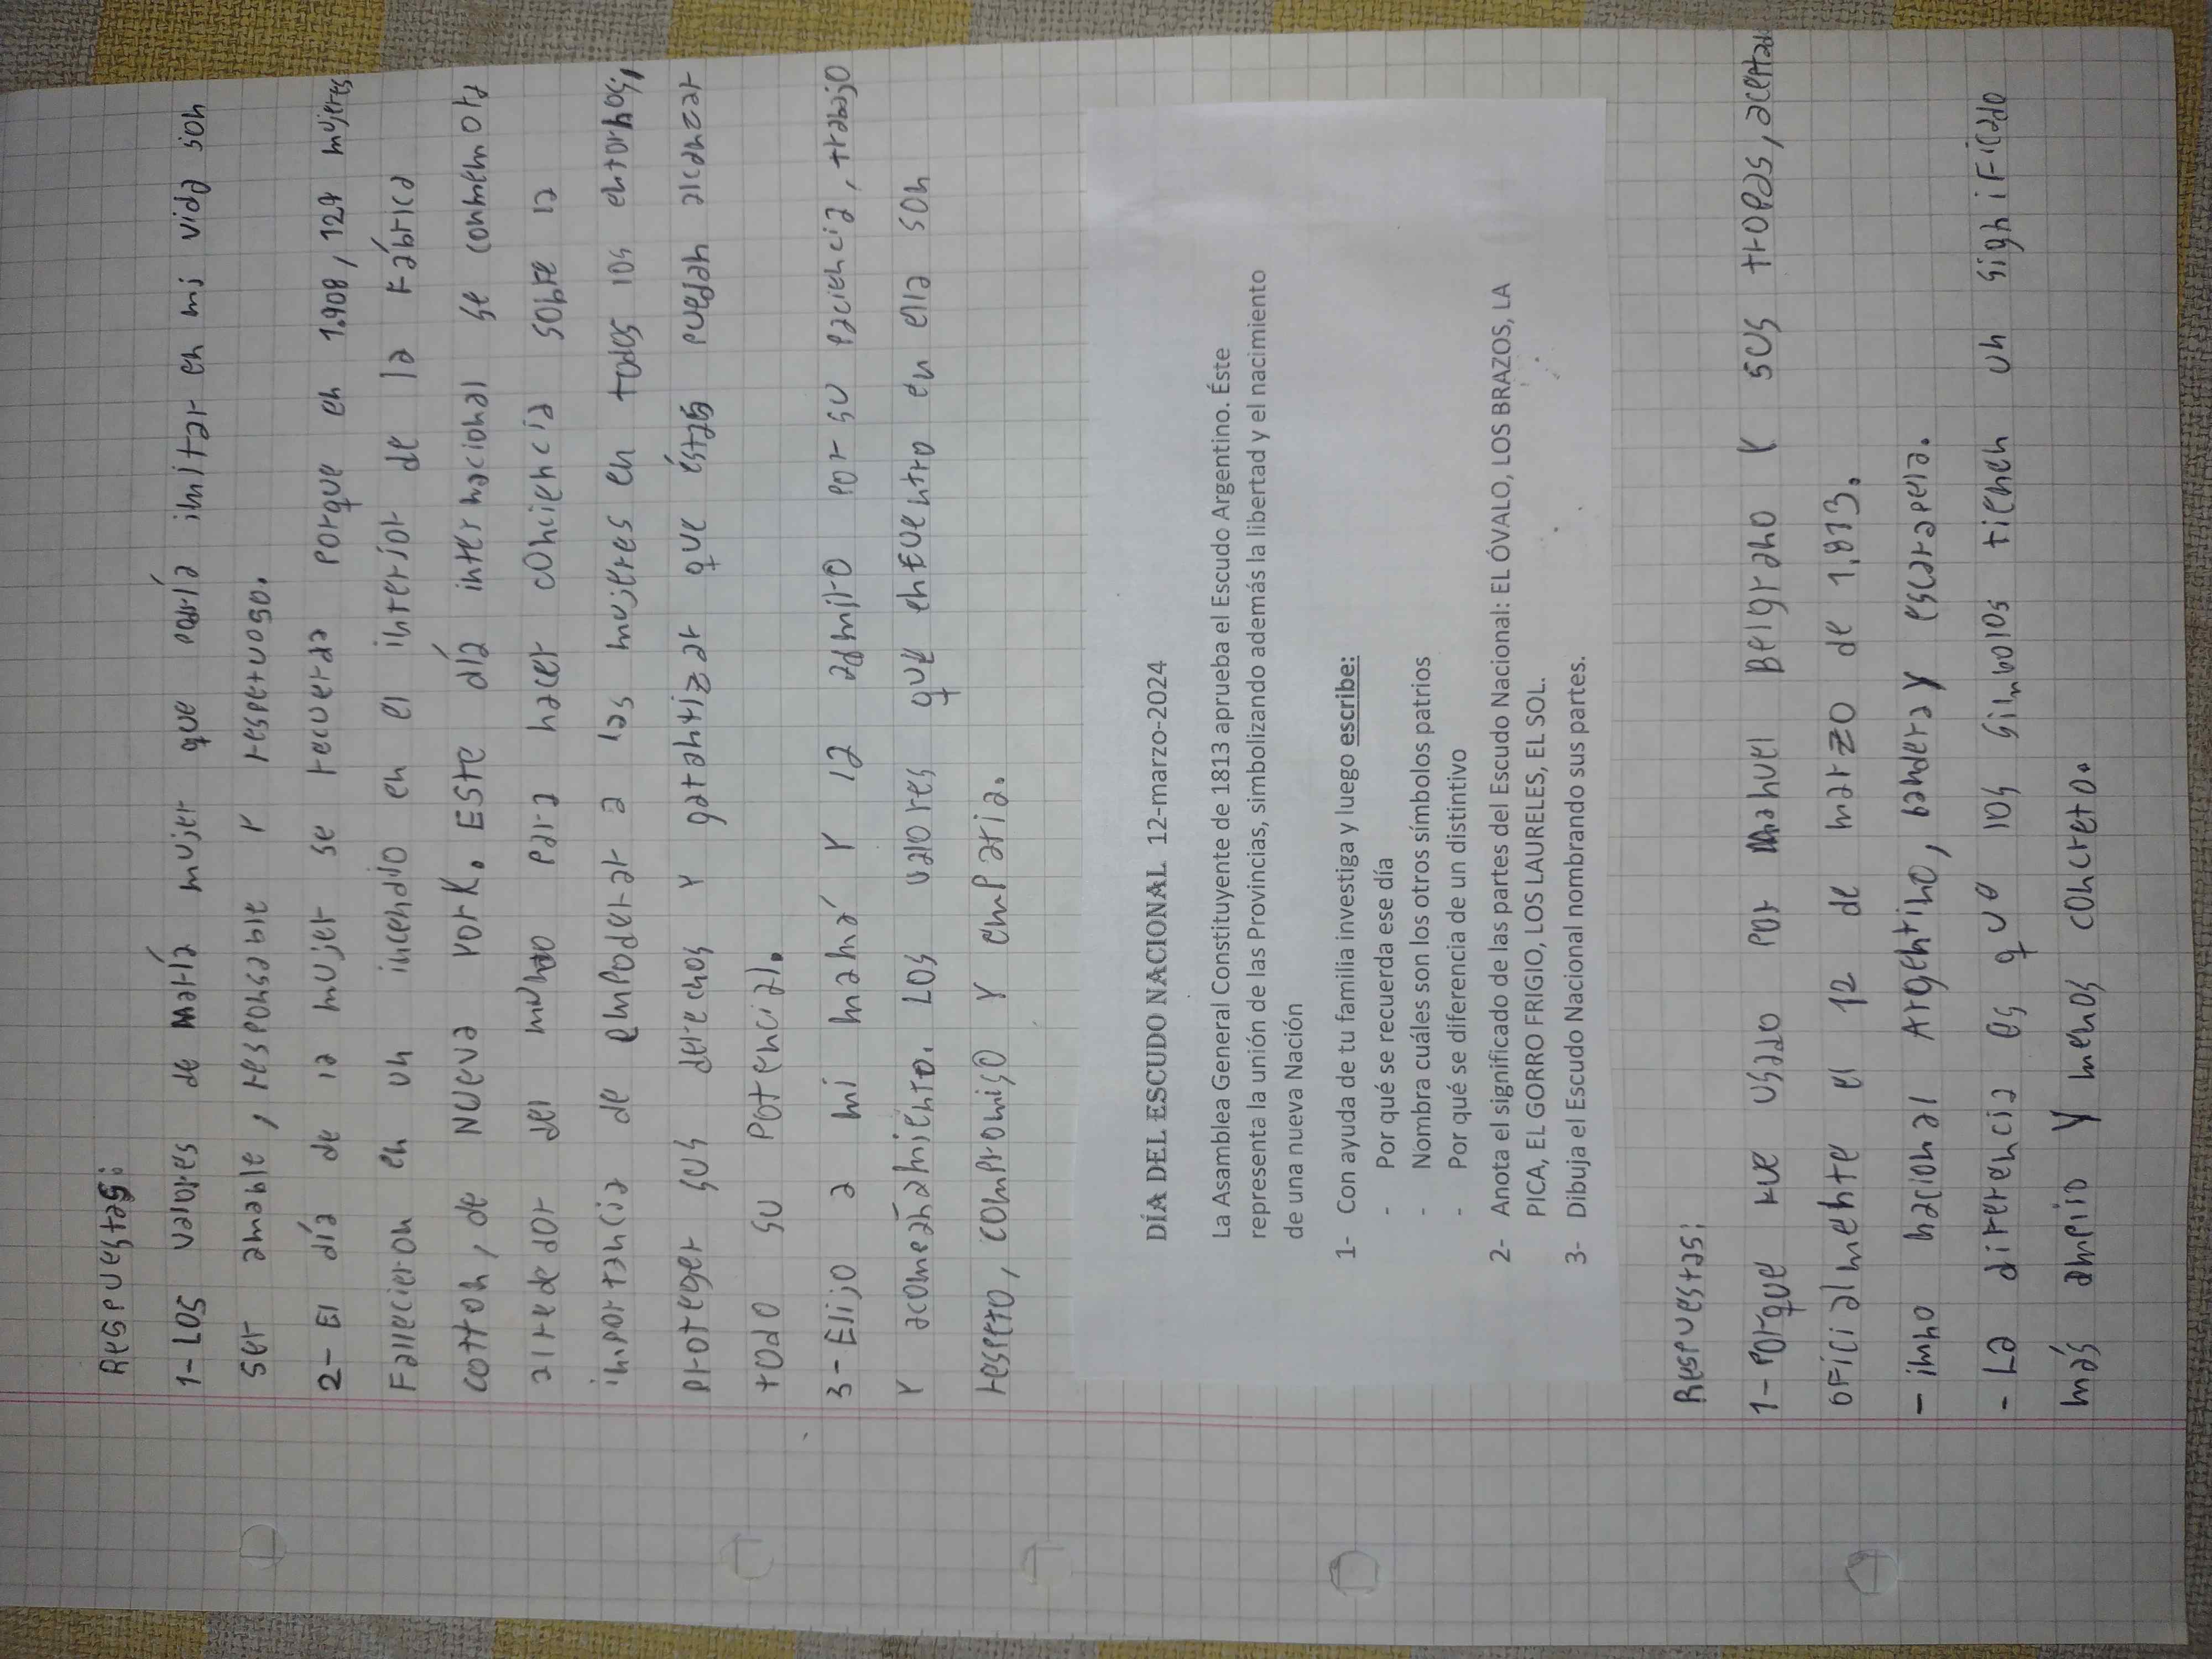 Respuestas:
1- Los valores de María mujer que podría imitar en mi vida son
ser amable, responsable y respetuoso.
2- El día de la mujer se recuerda porque en 1.908, 129 mujeres
Fallecieron en un incendio en el interior de la Fábrica
cotton, de Nueva York. Este día internacional se conmemora
alrededor del mundo para hacer conciencia sobre la
importancia de empoderar a las mujeres en todos los entornos,
proteger sus derechos y garantizar que éstas puedan alcanzar
todo su potencial.
3- Elijo a mi mamá y la admiro por su paciencia, trabajo
y acompañamiento. Los valores que encuentro en ella son
respeto, compromiso y empatia.
DÍA DEL ESCUDO NACIONAL 12-marzo-2024
La Asamblea General Constituyente de 1813 aprueba el Escudo Argentino. Éste
representa la unión de las Provincias, simbolizando además la libertad y el nacimiento
de una nueva Nación
1- Con ayuda de tu familia investiga y luego escribe:
- Por qué se recuerda ese día
- Nombra cuáles son los otros símbolos patrios
- Por qué se diferencia de un distintivo
2- Anota el significado de las partes del Escudo Nacional: EL ÓVALO, LOS BRAZOS, LA
PICA, EL GORRO FRIGIO, LOS LAURELES, EL SOL.
3- Dibuja el Escudo Nacional nombrando sus partes.
Respuestas:
1- Porque fue usado por Manuel Belgrano y sus tropas, aceptado
oficialmente el 12 de marzo de 1.813.
- imno nacional Argentino, bandera y escarapela.
- La diferencia es que los simbolos tienen un significado
más amplio y menos concreto.